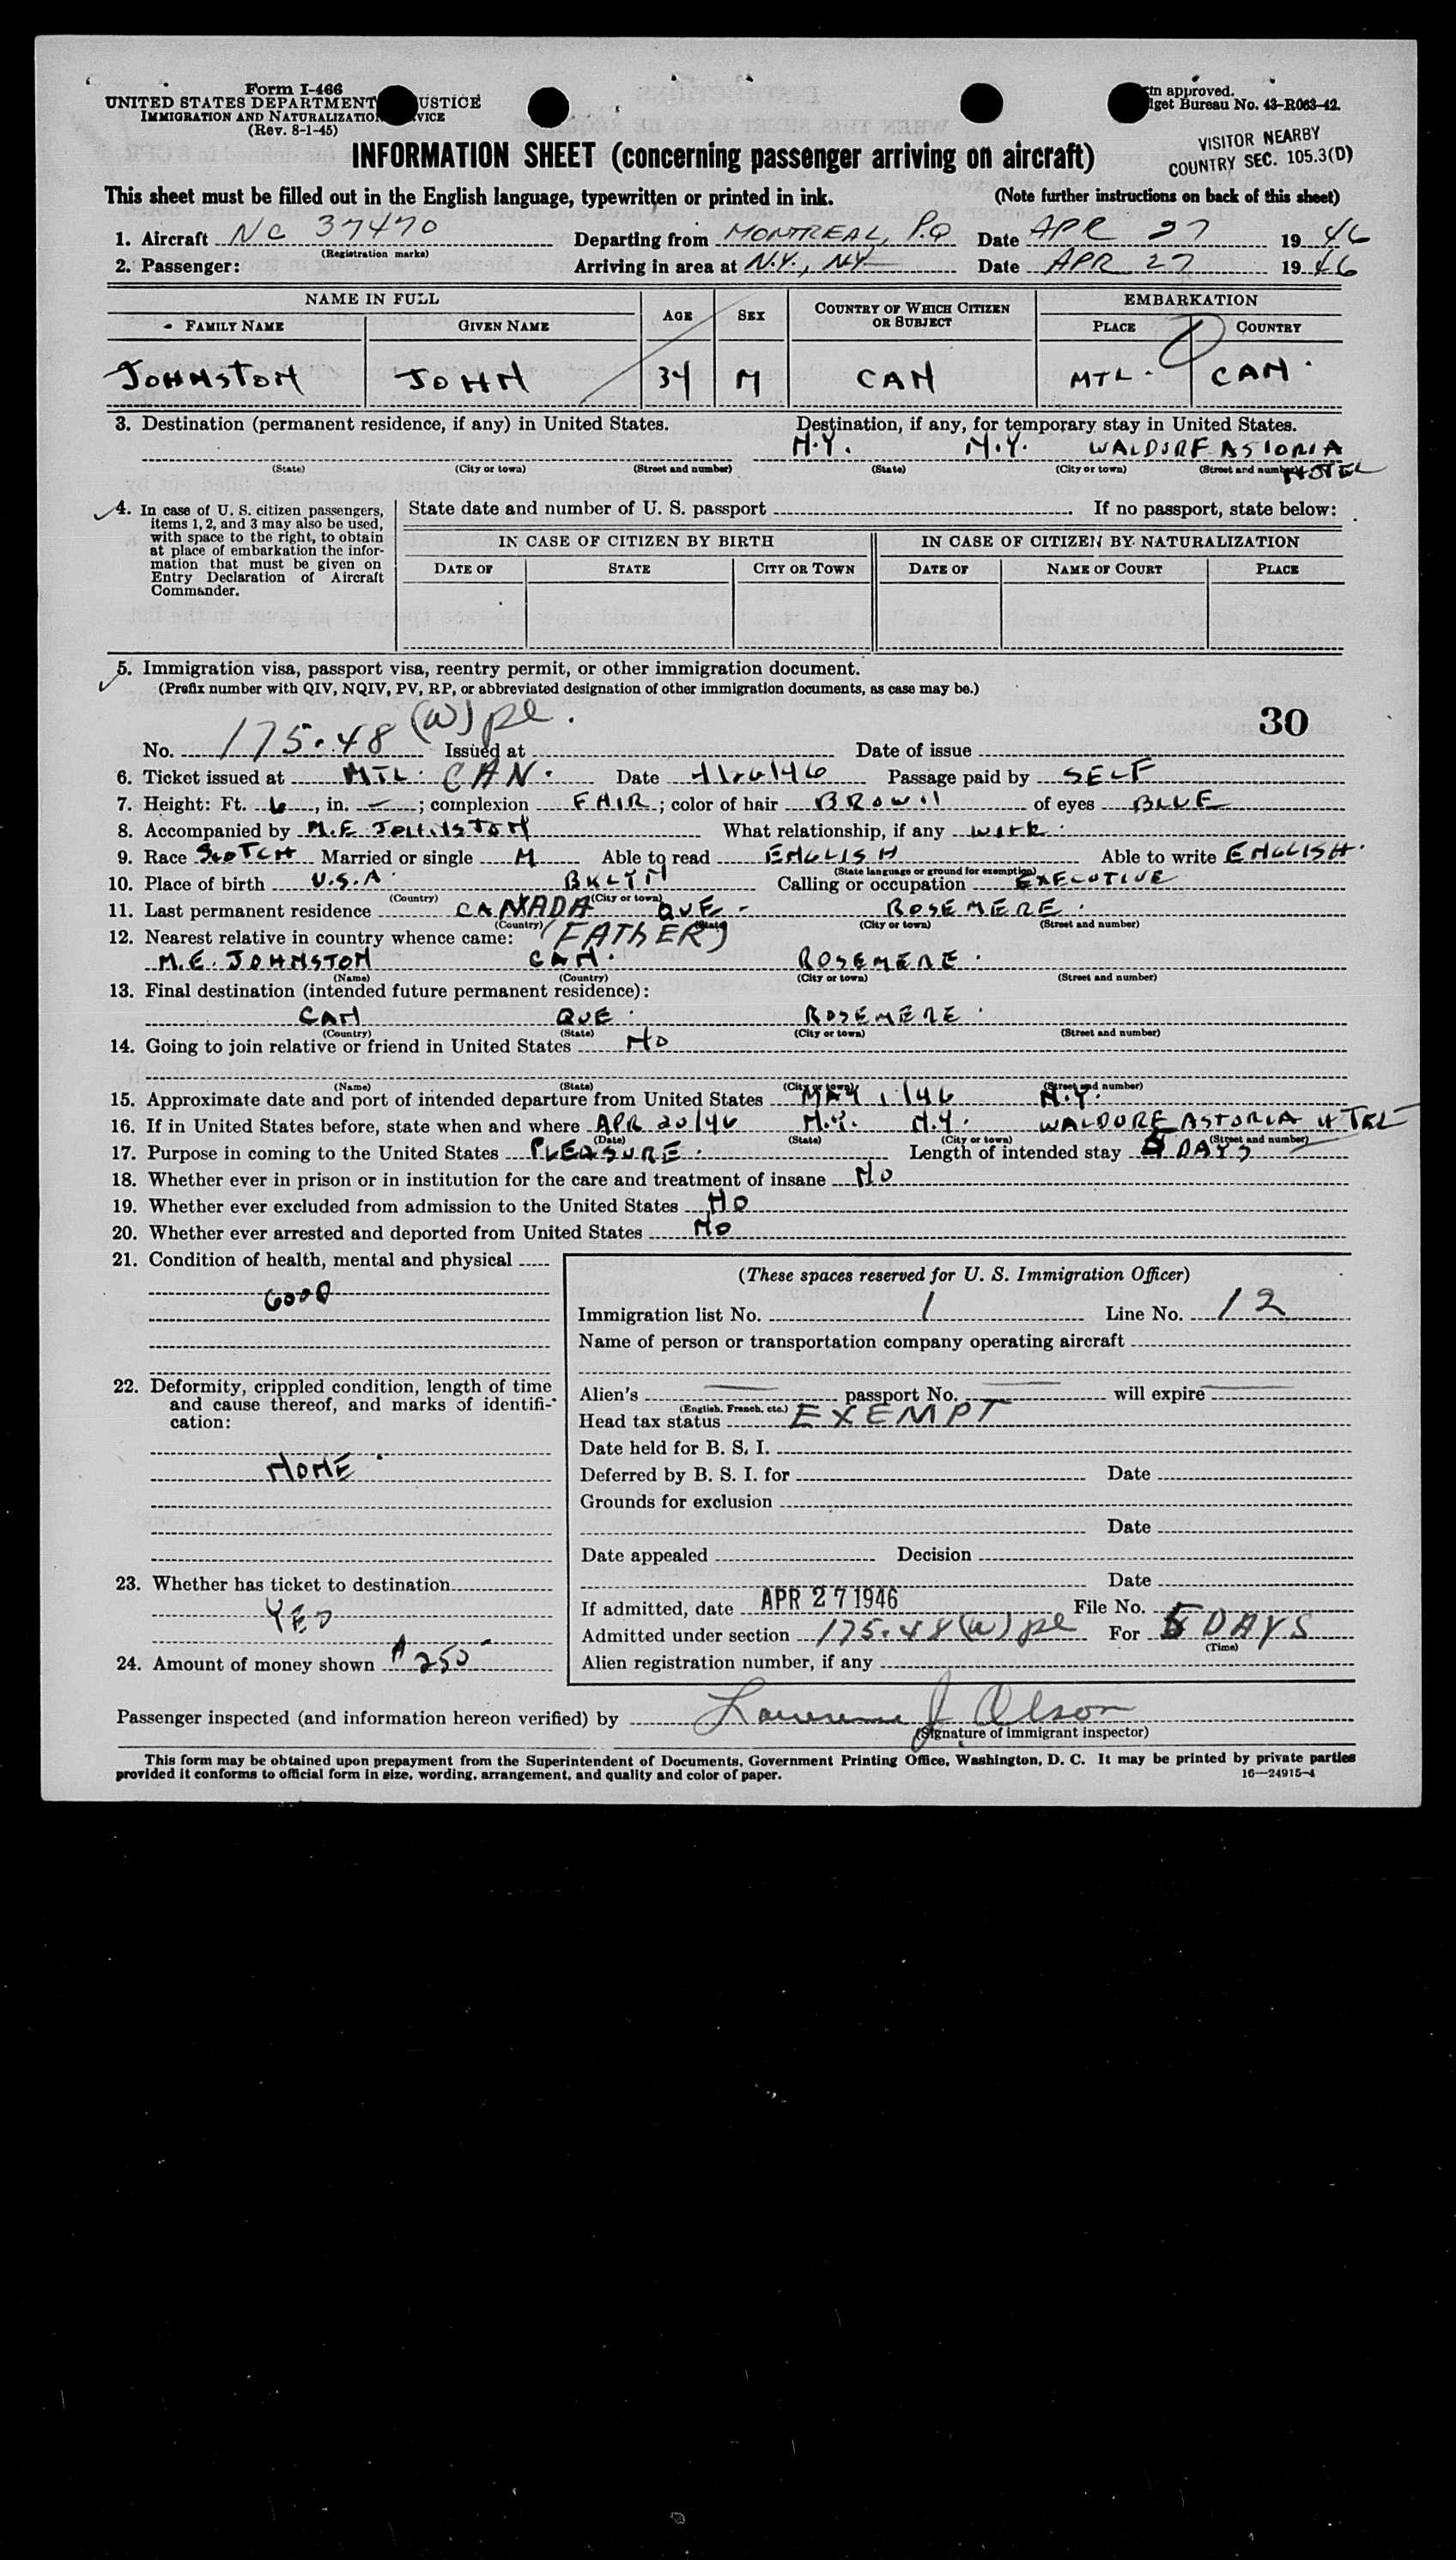 Form I-466
UNITED STATES DEPARTMENT USTICE
IMMIGRATION AND NATURALIZATION VICE
(Rev. 8-1-45)
approved.
get Bureau No. 43-R063-42.
VISITOR NEARBY
COUNTRY SEC. 105.3(D)
INFORMATION SHEET (concerning passenger arriving on aircraft)
This sheet must be filled out in the English language, typewritten or printed in ink. (Note further instructions on back of this sheet)
1. Aircraft NC 37470 Departing from MONTREAL, P.Q Date APR 27 1946
(Registration marks)
2. Passenger: Arriving in area at N.Y., N.Y. Date APR 27 1946
NAME IN FULL AGE SEX COUNTRY OF WHICH CITIZEN OR SUBJECT EMBARKATION
FAMILY NAME GIVEN NAME PLACE COUNTRY
JOHNSTON JOHN 34 M CAN MTL. CAN.
3. Destination (permanent residence, if any) in United States. Destination, if any, for temporary stay in United States.
N.Y. N.Y. WALDORF ASTORIA
(State) (City or town) (Street and number) (State) (City or town) (Street and number) HOTEL
4. In case of U. S. citizen passengers, items 1, 2, and 3 may also be used, with space to the right, to obtain at place of embarkation the information that must be given on Entry Declaration of Aircraft Commander.
State date and number of U. S. passport If no passport, state below:
IN CASE OF CITIZEN BY BIRTH IN CASE OF CITIZEN BY NATURALIZATION
DATE OF STATE CITY OR TOWN DATE OF NAME OF COURT PLACE
5. Immigration visa, passport visa, reentry permit, or other immigration document.
(Prefix number with QIV, NQIV, PV, RP, or abbreviated designation of other immigration documents, as case may be.)
30
No. 175.48 (W) pl. Issued at Date of issue
6. Ticket issued at MTL. CAN. Date 4/26/46 Passage paid by SELF
7. Height: Ft. 6, in. —; complexion FAIR; color of hair BROWN of eyes BLUE
8. Accompanied by M.E JOHNSTON What relationship, if any WIFE.
9. Race SCOTCH Married or single M Able to read ENGLISH Able to write ENGLISH.
(State language or ground for exemption)
10. Place of birth U.S.A. BKLYN Calling or occupation EXECUTIVE
(Country) (City or town)
11. Last permanent residence CANADA QUE. ROSEMERE.
(Country) (State) (City or town) (Street and number)
12. Nearest relative in country whence came: (FATHER)
M.E. JOHNSTON CAN. ROSEMERE.
(Name) (Country) (City or town) (Street and number)
13. Final destination (intended future permanent residence):
CAN QUE. ROSEMERE.
(Country) (State) (City or town) (Street and number)
14. Going to join relative or friend in United States NO
(Name) (State) (City or town) (Street and number)
15. Approximate date and port of intended departure from United States MAY 1/46 N.Y.
16. If in United States before, state when and where APR 20/46 N.Y. N.Y. WALDORF ASTORIA HTEL
(Date) (State) (City or town) (Street and number)
17. Purpose in coming to the United States PLEASURE. Length of intended stay 5 DAYS
18. Whether ever in prison or in institution for the care and treatment of insane NO
19. Whether ever excluded from admission to the United States NO
20. Whether ever arrested and deported from United States NO
21. Condition of health, mental and physical
GOOD
22. Deformity, crippled condition, length of time and cause thereof, and marks of identification:
NONE.
23. Whether has ticket to destination
YES
24. Amount of money shown $250
(These spaces reserved for U. S. Immigration Officer)
Immigration list No. 1 Line No. 12
Name of person or transportation company operating aircraft
Alien's passport No. will expire
(English, French, etc.)
Head tax status EXEMPT
Date held for B. S. I.
Deferred by B. S. I. for Date
Grounds for exclusion
Date
Date appealed Decision
Date
If admitted, date APR 27 1946 File No.
Admitted under section 175.48 (W) pl For 5 DAYS
(Time)
Alien registration number, if any
Passenger inspected (and information hereon verified) by Lawrence J Olson
(Signature of immigrant inspector)
This form may be obtained upon prepayment from the Superintendent of Documents, Government Printing Office, Washington, D. C. It may be printed by private parties
provided it conforms to official form in size, wording, arrangement, and quality and color of paper. 16—24915-4